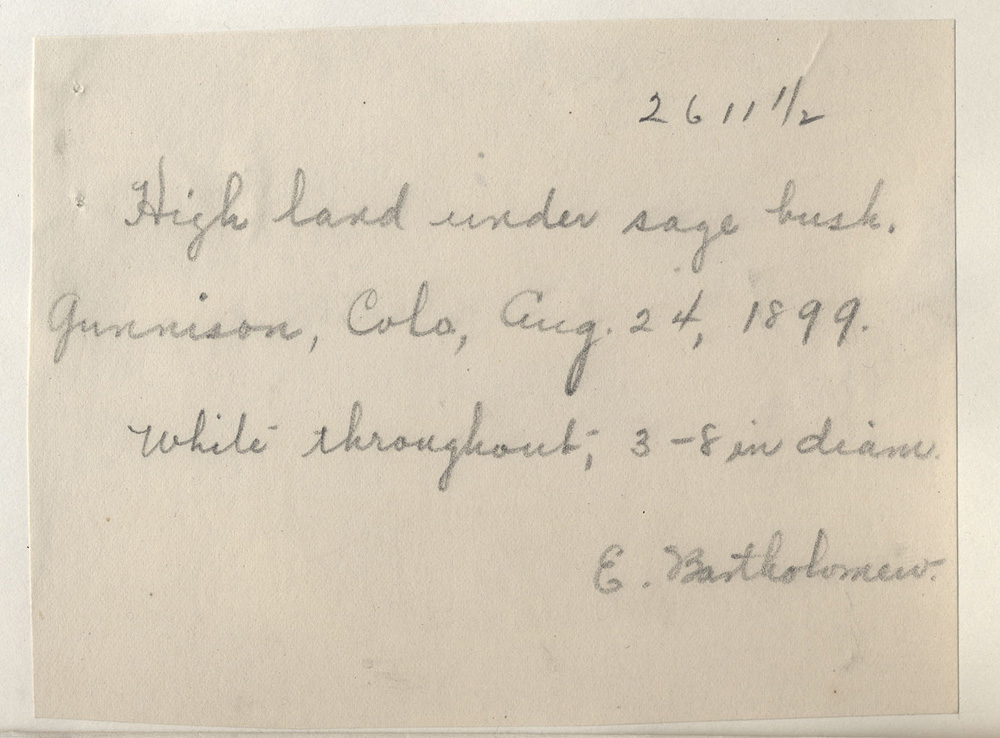 2611 1/2
High land under sage bush.
Gunnison, Colo, Aug. 24, 1899.
White throughout; 3-8 in diam.
E. Bartholomew.